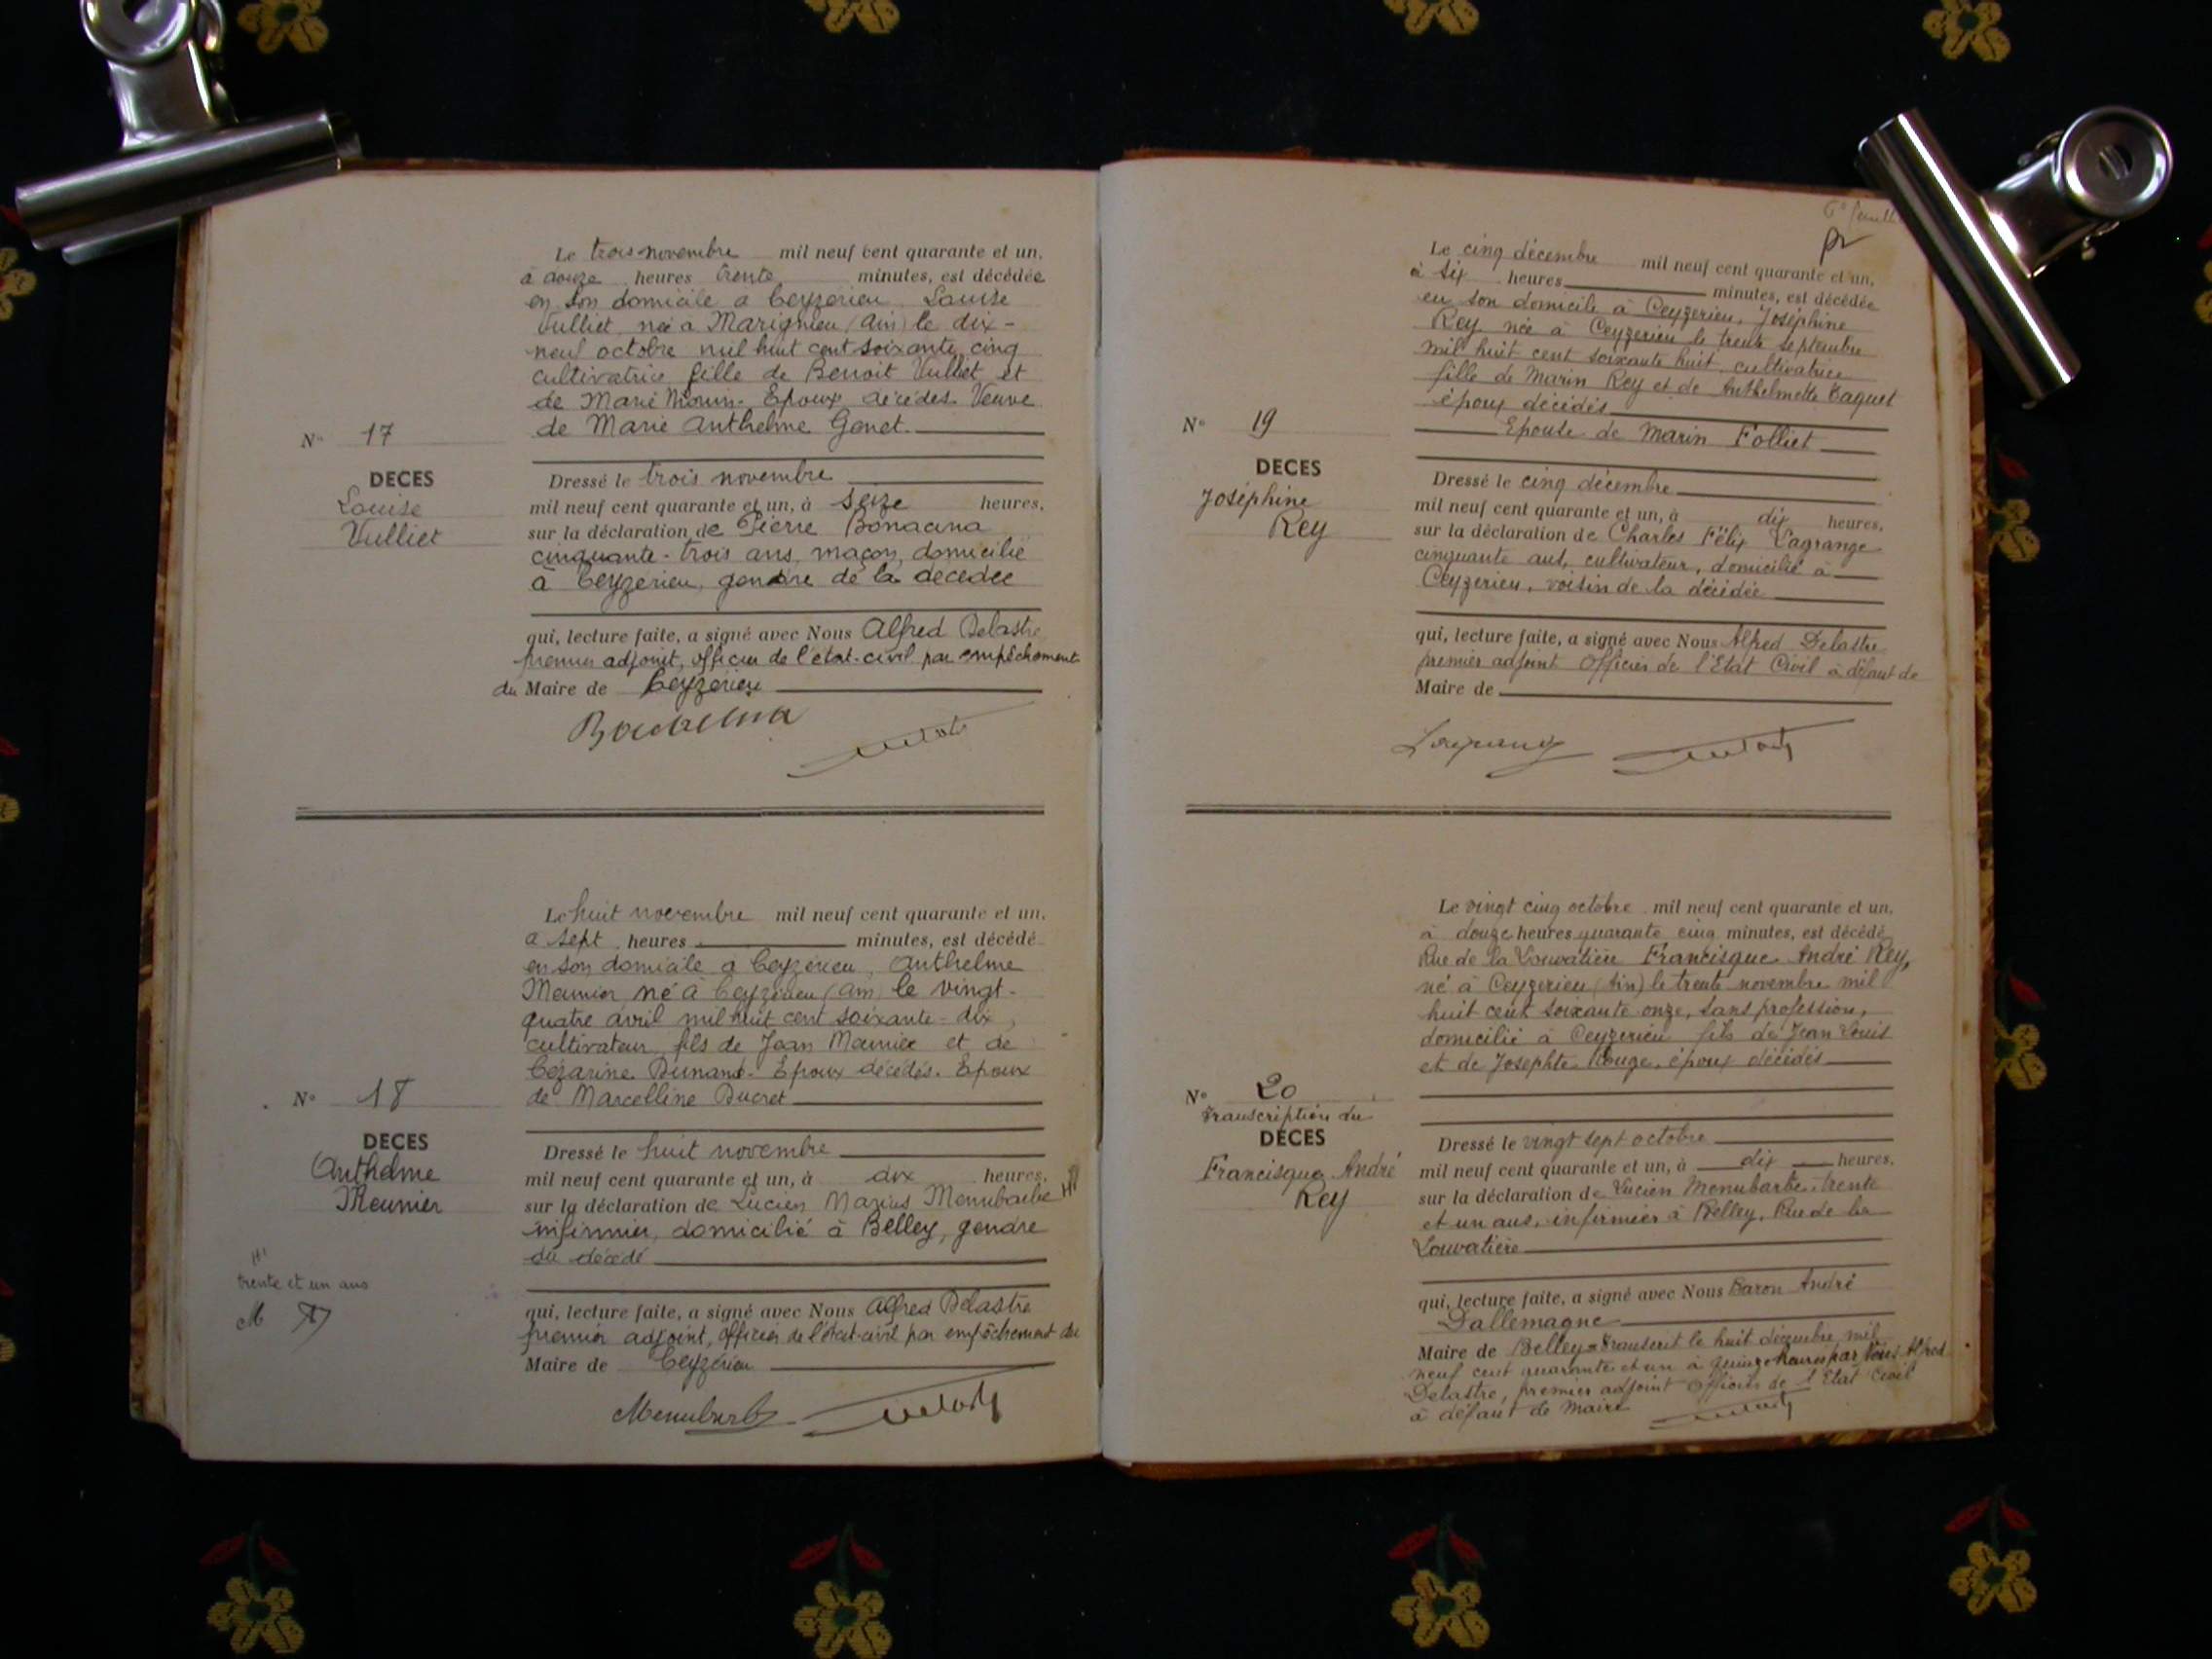 Le trois novembre mil neuf cent quarante et un.
à douze heures trente minutes, est décédée
en son domicile à Ceyzérieu Louise
Vulliet née à Marignieu (Ain) le dix-
neuf octobre mil huit cent soixante cinq
cultivatrice fille de Benoit Vulliet et
de Marie Epoux décédés. Veuve
de Marie Anthelme Genet.
N° 17
DECES
Louise
Vulliet
Dressé le trois novembre
mil neuf cent quarante et un, à seize heures,
sur la déclaration de Pierre Bonacina
cinquante-trois ans, maçon, domicilié
à Ceyzérieu, gendre de la décédée
qui, lecture faite, a signé avec Nous Alfred Delastre
premier adjoint, officier de l'état-civil par empêchement
du Maire de Ceyzérieu
Le huit novembre mil neuf cent quarante et un.
à sept heures minutes, est décédé
en son domicile à Ceyzérieu, Anthelme
Meunier né à Ceyzérieu (Ain) le vingt-
quatre avril mil huit cent soixante-dix,
cultivateur fils de Jean Meunier et de
Cézarine Dunand. Epoux décédés. Epoux
de Marcelline Ducret
N° 18
DECES
Anthelme
Meunier
Dressé le huit novembre
mil neuf cent quarante et un, à dix heures,
sur la déclaration de Lucien Marius Menubarbe
infirmier, domicilié à Belley, gendre
du décédé
trente et un ans
qui, lecture faite, a signé avec Nous Alfred Delastre
premier adjoint, officier de l'état-civil par empêchement du
Maire de Ceyzérieu
Menubarbe
Le cinq décembre mil neuf cent quarante et un,
à six heures minutes, est décédée
en son domicile à Ceyzerieu, Joséphine
Rey née à Ceyzerieu le trente septembre
mil huit cent soixante huit, cultivatrice
fille de Marin Rey et de Anthelmette Taquet
époux décédés
Epouse de Marin Folliet
N° 19
DECES
Joséphine
Rey
Dressé le cinq décembre
mil neuf cent quarante et un, à dix heures,
sur la déclaration de Charles Félix Lagrange
cinquante ans, cultivateur, domicilié à
Ceyzerieu, voisin de la décédée
qui, lecture faite, a signé avec Nous Alfred Delastre
premier adjoint Officier de l'Etat Civil à défaut de
Maire de
Lagrange
Le vingt cinq octobre mil neuf cent quarante et un,
à douze heures quarante cinq minutes, est décédé
Rue de la Louvatière Francisque André Rey,
né à Ceyzerieu (Ain) le trente novembre mil
huit cent soixante onze, sans profession,
domicilié à Ceyzerieu fils de Jean Louis
et de Josephte Rouge, époux décédés
N° 20
Transcription du
DECES
Francisque André
Rey
Dressé le vingt sept octobre
mil neuf cent quarante et un, à dix heures,
sur la déclaration de Lucien Menubarbe, trente
et un ans, infirmier à Belley, Rue de la
Louvatière
qui, lecture faite, a signé avec Nous Baron André
Dallemagne
Maire de Belley = Transcrit le huit décembre mil
neuf cent quarante et un à quinze heures par Nous Alfred
Delastre, premier adjoint Officier de l'Etat Civil
à défaut de Maire